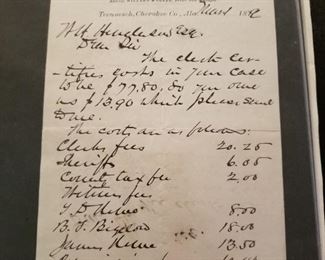 Teemesch, Cherokee Co., Ala. 189
W H Henderson Esq.
Dear Sir
The clerk cer-
tifies costs in your case
to be $77.80, So you owe
us $13.90 which please send
to me.
The costs are as follows:
Clerks fees 20.25
Sheriff's 6.05
County tax fee 2.00
Witness fees
J. D. 8.00
B. F. Bigelow 18.00
James 13.50